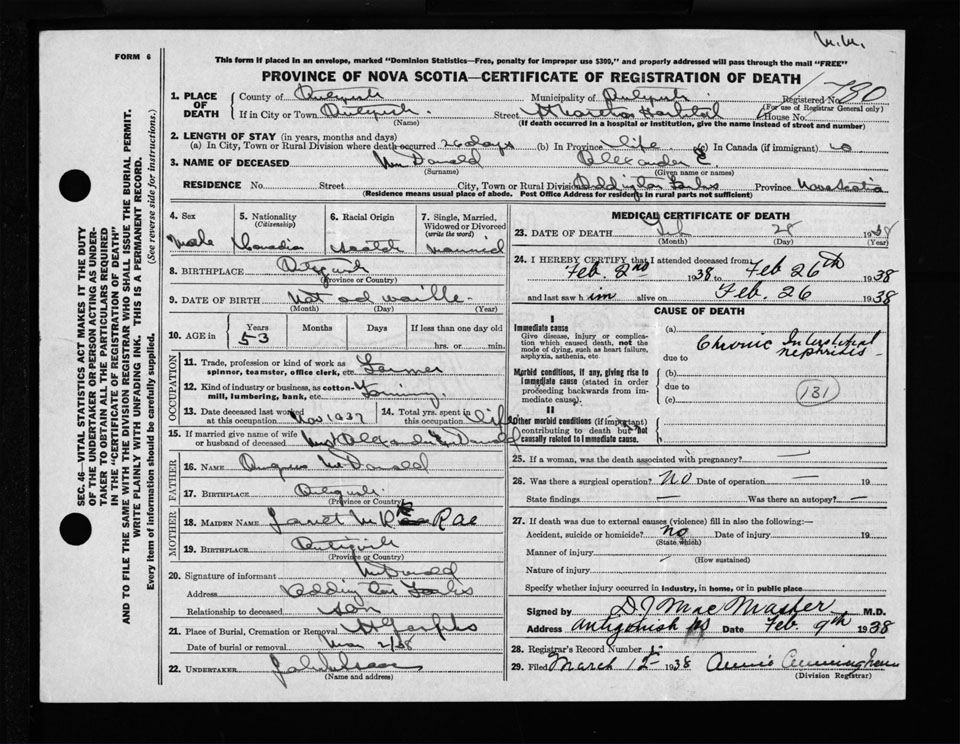 M.M.
FORM 6
This form if placed in an envelope, marked "Dominion Statistics—Free, penalty for improper use $300," and properly addressed will pass through the mail "FREE"
PROVINCE OF NOVA SCOTIA—CERTIFICATE OF REGISTRATION OF DEATH
1. PLACE OF DEATH
County of Antigonish Municipality of Antigonish Registered No. 1780
(For use of Registrar General only)
If in City or Town Antigonish Street St Martha's Hospital House No.
(Name) (If death occurred in a hospital or institution, give the name instead of street and number)
2. LENGTH OF STAY (in years, months and days)
(a) In City, Town or Rural Division where death occurred 26 days (b) In Province life (c) In Canada (if immigrant)
3. NAME OF DECEASED McDonald Alexander E.
(Surname) (Given name or names)
RESIDENCE No. Street City, Town or Rural Division Addington Forks Province Nova Scotia
(Residence means usual place of abode. Post Office Address for residents in rural parts not sufficient)
4. Sex Male
5. Nationality (Citizenship) Canadian
6. Racial Origin Scotch
7. Single, Married, Widowed or Divorced (write the word) Married
8. BIRTHPLACE Antigonish
(Province or Country)
9. DATE OF BIRTH Not
(Month) (Day) (Year)
10. AGE in Years 53 Months Days If less than one day old hrs. or min.
OCCUPATION
11. Trade, profession or kind of work as spinner, teamster, office clerk, etc. Farmer
12. Kind of industry or business, as cotton-mill, lumbering, bank, etc. Farming
13. Date deceased last worked at this occupation Nov 1937
14. Total yrs. spent in this occupation life
15. If married give name of wife or husband of deceased Mrs Alexander McDonald
FATHER
16. NAME Angus McDonald
17. BIRTHPLACE Antigonish
(Province or Country)
MOTHER
18. MAIDEN NAME Janet Mc Rae
19. BIRTHPLACE Antigonish
(Province or Country)
20. Signature of informant McDonald
Address Addington Forks
Relationship to deceased Son
21. Place of Burial, Cremation or Removal St Josephs
Date of burial or removal Mar 2/38
22. UNDERTAKER
(Name and address)
MEDICAL CERTIFICATE OF DEATH
23. DATE OF DEATH Feb 28 1938
(Month) (Day) (Year)
24. I HEREBY CERTIFY that I attended deceased from
Feb. 2nd 1938 to Feb 26th 1938
and last saw him alive on Feb. 26 1938
CAUSE OF DEATH
I
Immediate cause
Give disease, injury or complication which caused death, not the mode of dying, such as heart failure, asphyxia, asthenia, etc.
(a) Chronic Interstitial nephritis
due to
Morbid conditions, if any, giving rise to immediate cause (stated in order proceeding backwards from immediate cause).
(b)
due to
(c)
(131)
II
Other morbid conditions (if important) contributing to death but not causally related to immediate cause.
25. If a woman, was the death associated with pregnancy? —
26. Was there a surgical operation? NO Date of operation — 19
State findings — Was there an autopsy? —
27. If death was due to external causes (violence) fill in also the following:—
Accident, suicide or homicide? no Date of injury 19
(State which)
Manner of injury
(How sustained)
Nature of injury
Specify whether injury occurred in industry, in home, or in public place
Signed by D J MacMaster M.D.
Address Antigonish NS Date Feb 9th 1938
28. Registrar's Record Number
29. Filed March 12 1938 Annie Cunningham
(Division Registrar)
SEC. 46—VITAL STATISTICS ACT MAKES IT THE DUTY
OF THE UNDERTAKER OR PERSON ACTING AS UNDER-
TAKER TO OBTAIN ALL THE PARTICULARS REQUIRED
IN THE "CERTIFICATE OF REGISTRATION OF DEATH"
AND TO FILE THE SAME WITH THE DIVISION REGISTRAR WHO SHALL ISSUE THE BURIAL PERMIT.
WRITE PLAINLY WITH UNFADING INK. THIS IS A PERMANENT RECORD.
Every item of information should be carefully supplied. (See reverse side for instructions.)